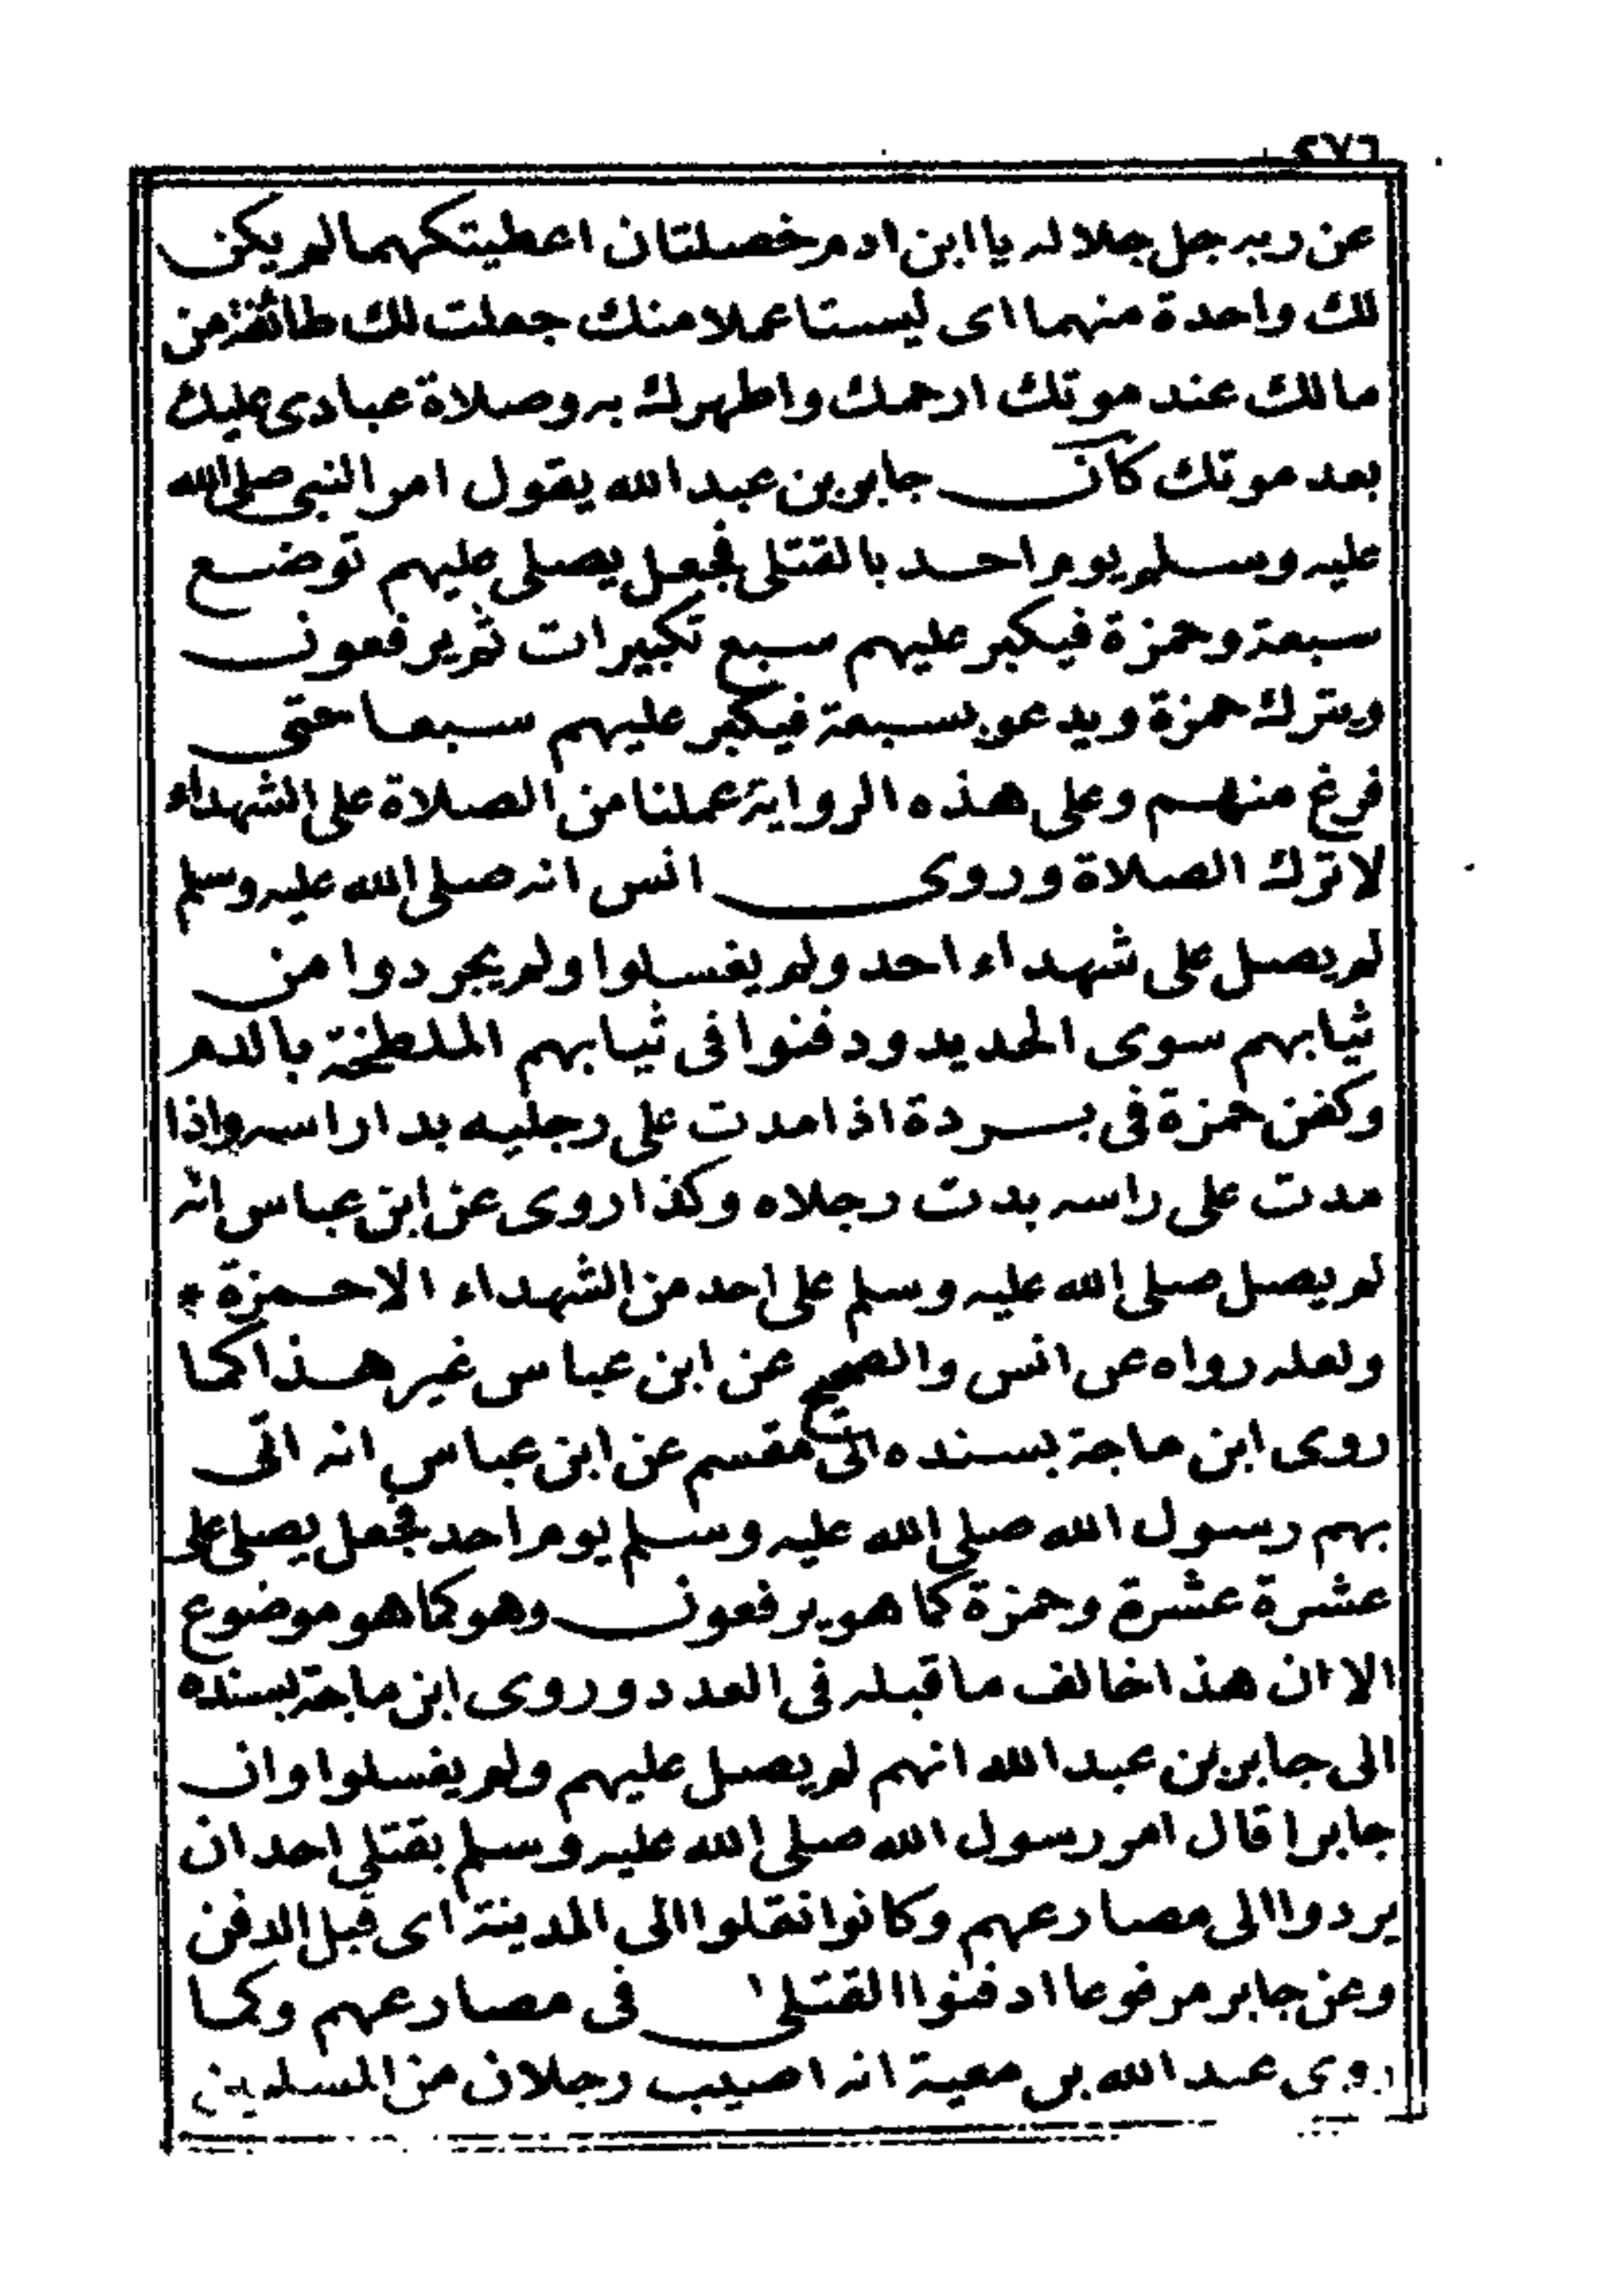 ٤٧٦
عن ربه جل جلاله يا ابن ادم خصلتان اعطيتكهما لم يكن
لك واحدة منهما اى ليستا عملا منك جعلت لك طائفة من
مالك عند موتك ارحمك واطهرك به وصلاة عبادى عليك
بعد موتك كان جابر بن عبد الله يقول امر النبى صلى الله
عليه وسلم يوم احد بالقتلى فجعل يصلى عليهم توضع
سبعة وحمزة فيكبر عليهم سبع تكبيرات ثم يرفعون
ويترك حمزة ويدعو بسبعة فيكبر عليهم سبعا حتى
فرغ منهم وعلى هذه الرواية عملنا من الصلاة على الشهداء
لا ترك الصلاة وروى انس انه صلى الله عليه وسلم
لم يصل على شهداء احد ولم يغسلوا ولم يجردوا من
ثيابهم سوى الحديد ودفنوا فى ثيابهم الملطخة بالدم
وكفن حمزة فى بردة اذا مدت على رجليه بدا راسه واذا
مدت على راسه بدت رجلاه وكذا روى عن ابن عباس انه
لم يصل صلى الله عليه وسلم على احد من الشهداء الا حمزة *
ولعله رواه عن انس والصحيح عن ابن عباس غير هذا كما
روى ابن ماجة بسنده الى مقسم عن ابن عباس انه اتى
بهم رسول الله صلى الله عليه وسلم يوم احد فجعل يصلى على
عشرة عشرة وحمزة كما هو يرفعون وهو كما هو موضوع
الا ان هذا خالف ما قبله فى العدد وروى ابن ماجة بسنده
الى جابر بن عبد الله انهم لم يصل عليهم ولم يغسلوا وان
جابرا قال امر رسول الله صلى الله عليه وسلم بقتلى احد ان
يردوا الى مصارعهم وكانوا نقلوا الى المدينة اى قبل الدفن
وعن جابر مرفوعا ادفنوا القتلى فى مصارعهم وكما
روى عبد الله بن معية انه اصيب رجلان من المسلمين